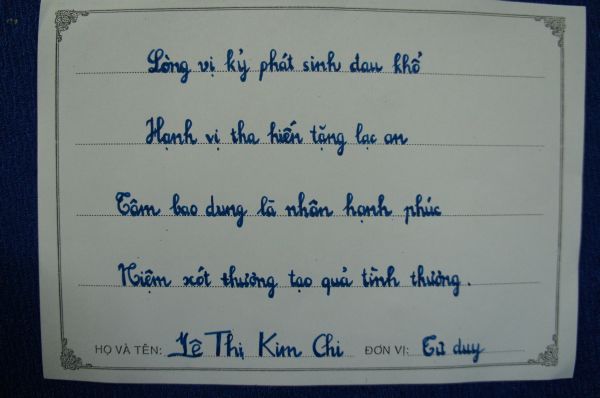 Lòng vị kỷ phát sinh đau khổ
Hạnh vị tha hiến tặng lạc an
Tâm bao dung là nhân hạnh phúc
Niệm xót thương tạo quả tình thương.
HỌ VÀ TÊN: Lê Thị Kim Chi ĐƠN VỊ: Tư duy